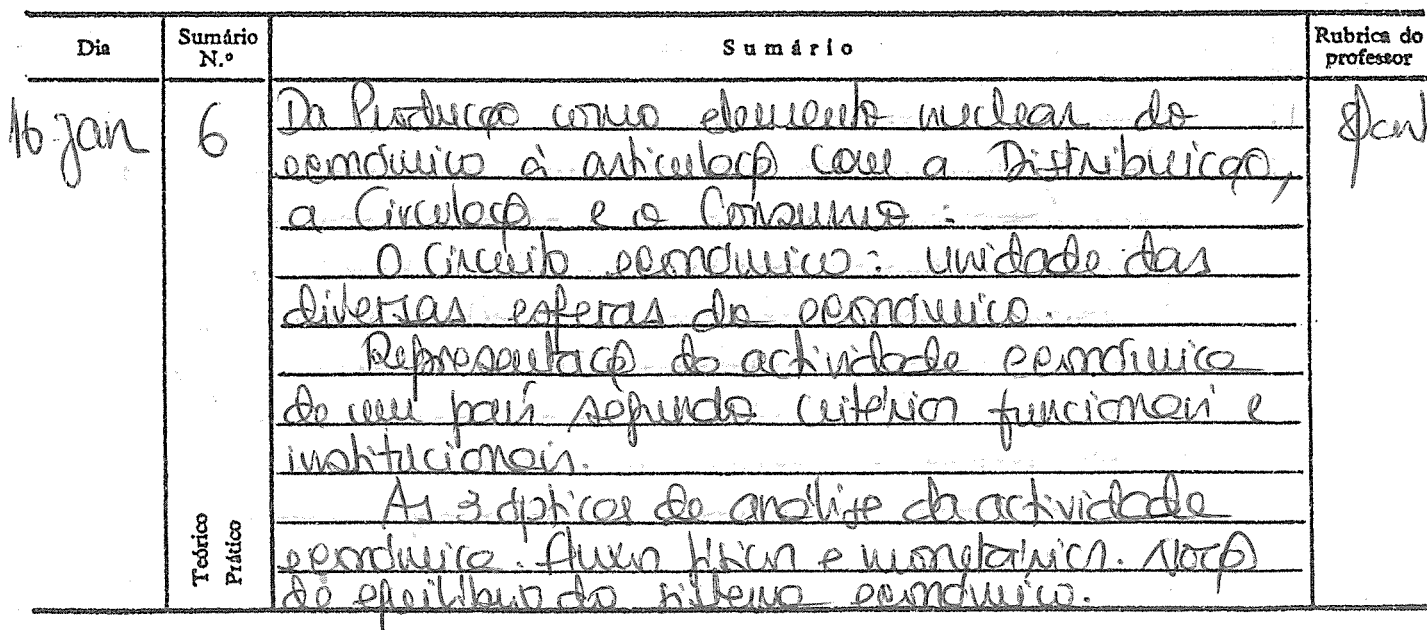 Dia Sumário N.º Sumário Rubrica do professor
16 jan 6 Da Produção como elemento nuclear do
económico à articulação com a Distribuição,
a Circulação e o Consumo.
O Circuito económico: unidade das
diversas esferas do económico.
Representação da actividade económica
de um país segundo critérios funcionais e
institucionais.
As 3 ópticas de análise da actividade
económica. Fluxos físicos e monetários. Noção
de equilíbrio do sistema económico.
Teórico
Prático